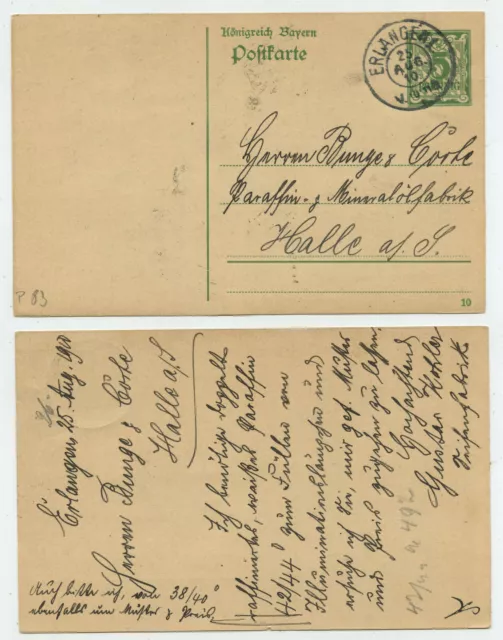 Königreich Bayern
Postkarte
ERLANGEN 1
25
AUG.
10
Herren Bunge & Corte
Paraffin- & Mineralölfabrik
Halle a/S.
10
P 83
Erlangen 25. Aug. 1910
Herren Bunge & Corte
Halle a/S
Ich benötige doppelt
raffiniertes, weißes Paraffin
42/44° zum Füllen von
Illuminationslampen und
ersuche ich Sie, mir gef. Muster
und Preis zugehen zu lassen.
Hochachtend
Gustav Kohler
Seifenfabrik
Auch bitte ich, von 38/40°
ebenfalls um Muster & Preis.